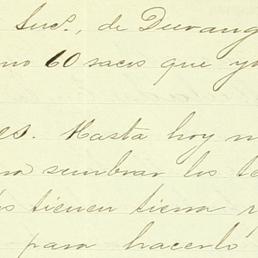 Sucs, de Durang
mo 60 sacos que ya
es. Hasta hoy n
ra sembrar los te
os tienen tierra
para hacerlo